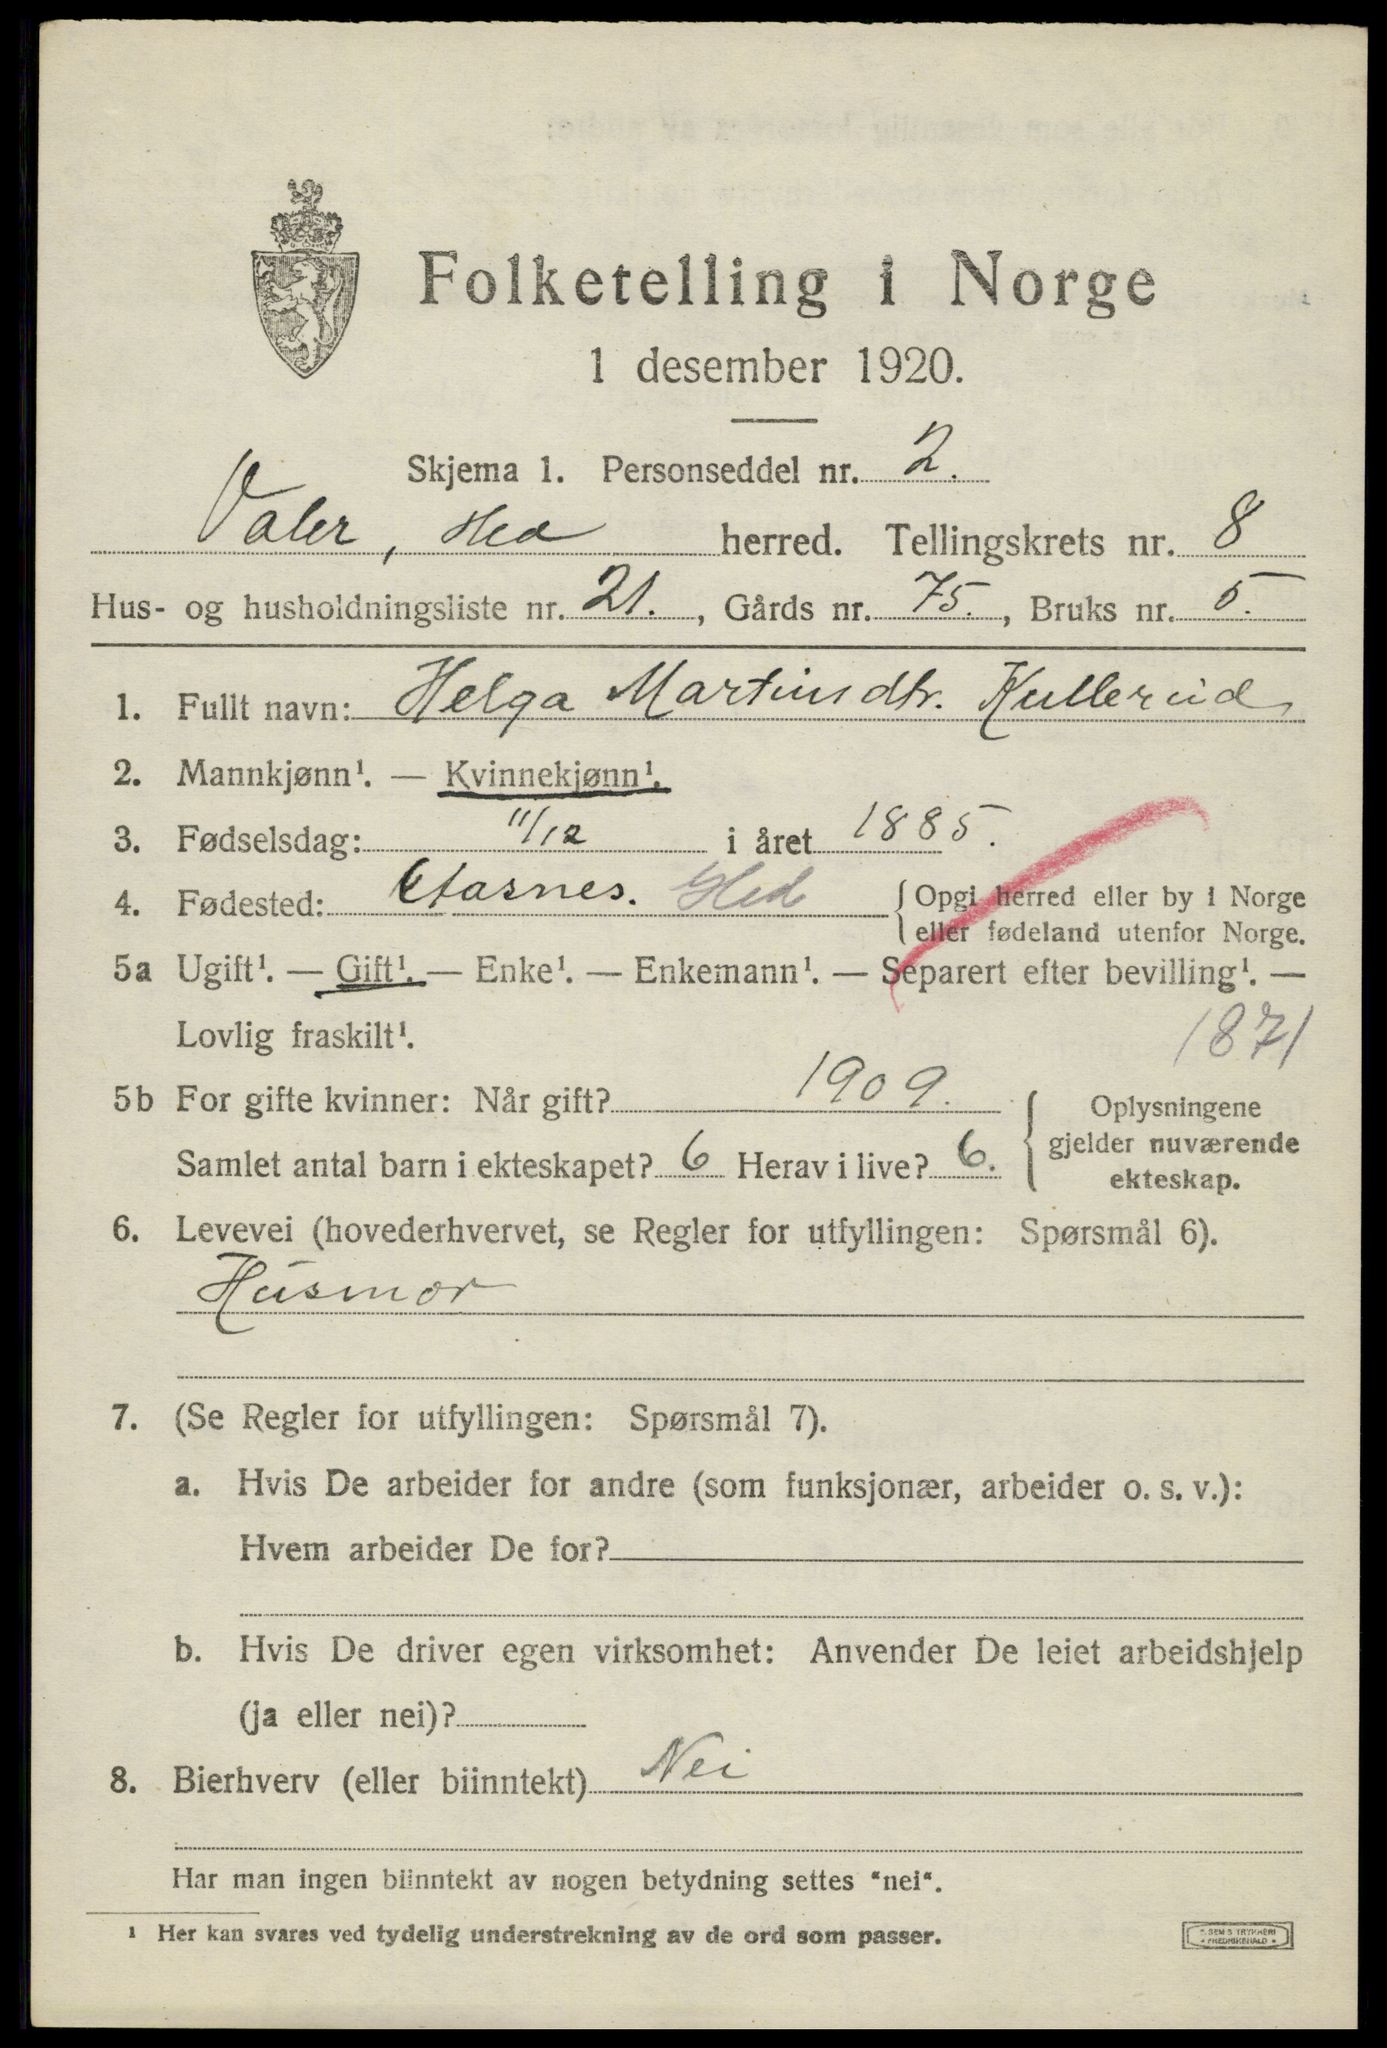 Folketelling i Norge
1 desember 1920.
Skjema 1. Personseddel nr. 2.
Valer, Hed herred. Tellingskrets nr. 8
Hus- og husholdningsliste nr. 21., Gårds nr. 75., Bruks nr. 5.
1. Fullt navn: Helga Martinsdtr. Kullerud
2. Mannkjønn¹. — Kvinnekjønn¹.
3. Fødselsdag: 11/12 i året 1885.
4. Fødested: Aasnes. Hed { Opgi herred eller by i Norge
eller fødeland utenfor Norge.
5a Ugift¹. — Gift¹. — Enke¹. — Enkemann¹. — Separert efter bevilling¹. —
Lovlig fraskilt¹. 1871
5b For gifte kvinner: Når gift? 1909. { Oplysningene
gjelder nuværende
Samlet antal barn i ekteskapet? 6 Herav i live? 6.
ekteskap.
6. Levevei (hovederhvervet, se Regler for utfyllingen: Spørsmål 6).
Husmor
7. (Se Regler for utfyllingen: Spørsmål 7).
a. Hvis De arbeider for andre (som funksjonær, arbeider o. s. v.):
Hvem arbeider De for?
b. Hvis De driver egen virksomhet: Anvender De leiet arbeidshjelp
(ja eller nei)?
8. Bierhverv (eller biinntekt) Nei
Har man ingen biinntekt av nogen betydning settes "nei".
¹ Her kan svares ved tydelig understrekning av de ord som passer.
SEMS TRYKKERI
FREDRIKSHALD